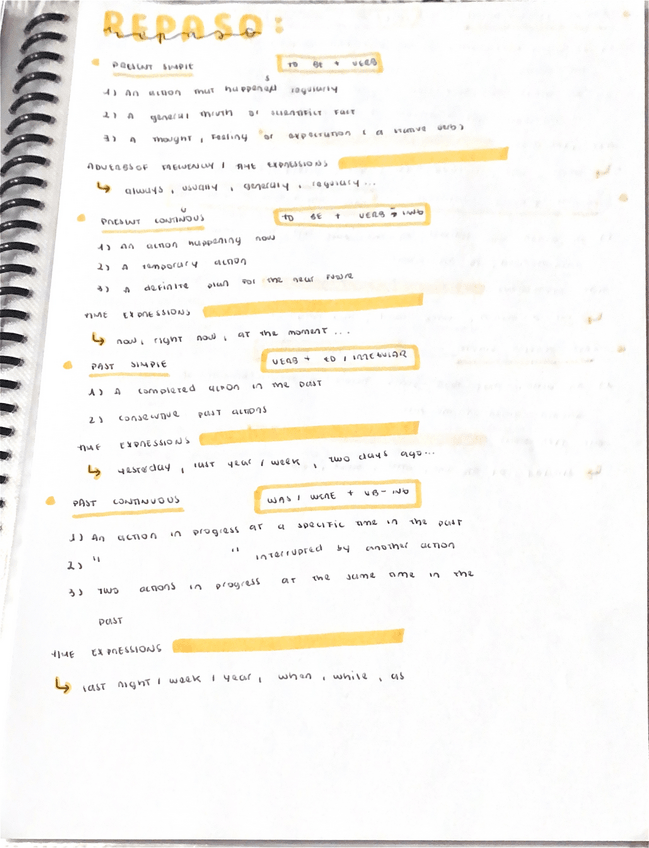 REPASO:
repaso
PRESENT SIMPLE TO BE + VERB
1) An action that happens regularly
2) A general truth or scientific fact
3) A thought, feeling or expectation (a stative verb)
ADVERBS OF FREQUENCY / TIME EXPRESSIONS
always, usually, generally, regulary...
PRESENT CONTINUOUS TO BE + VERB-ING
1) An action happening now
2) A temporary action
3) A definite plan for the near future
TIME EXPRESSIONS
now, right now, at the moment...
PAST SIMPLE VERB + ED / IRREGULAR
1) A completed action in the past
2) consecutive past actions
TIME EXPRESSIONS
yesteday, last year / week, two days ago...
PAST CONTINUOUS WAS / WERE + VB-ING
1) An action in progress at a specific time in the past
2) " " interrupted by another action
3) TWO actions in progress at the same time in the
past
TIME EXPRESSIONS
last night / week / year, when, while, as